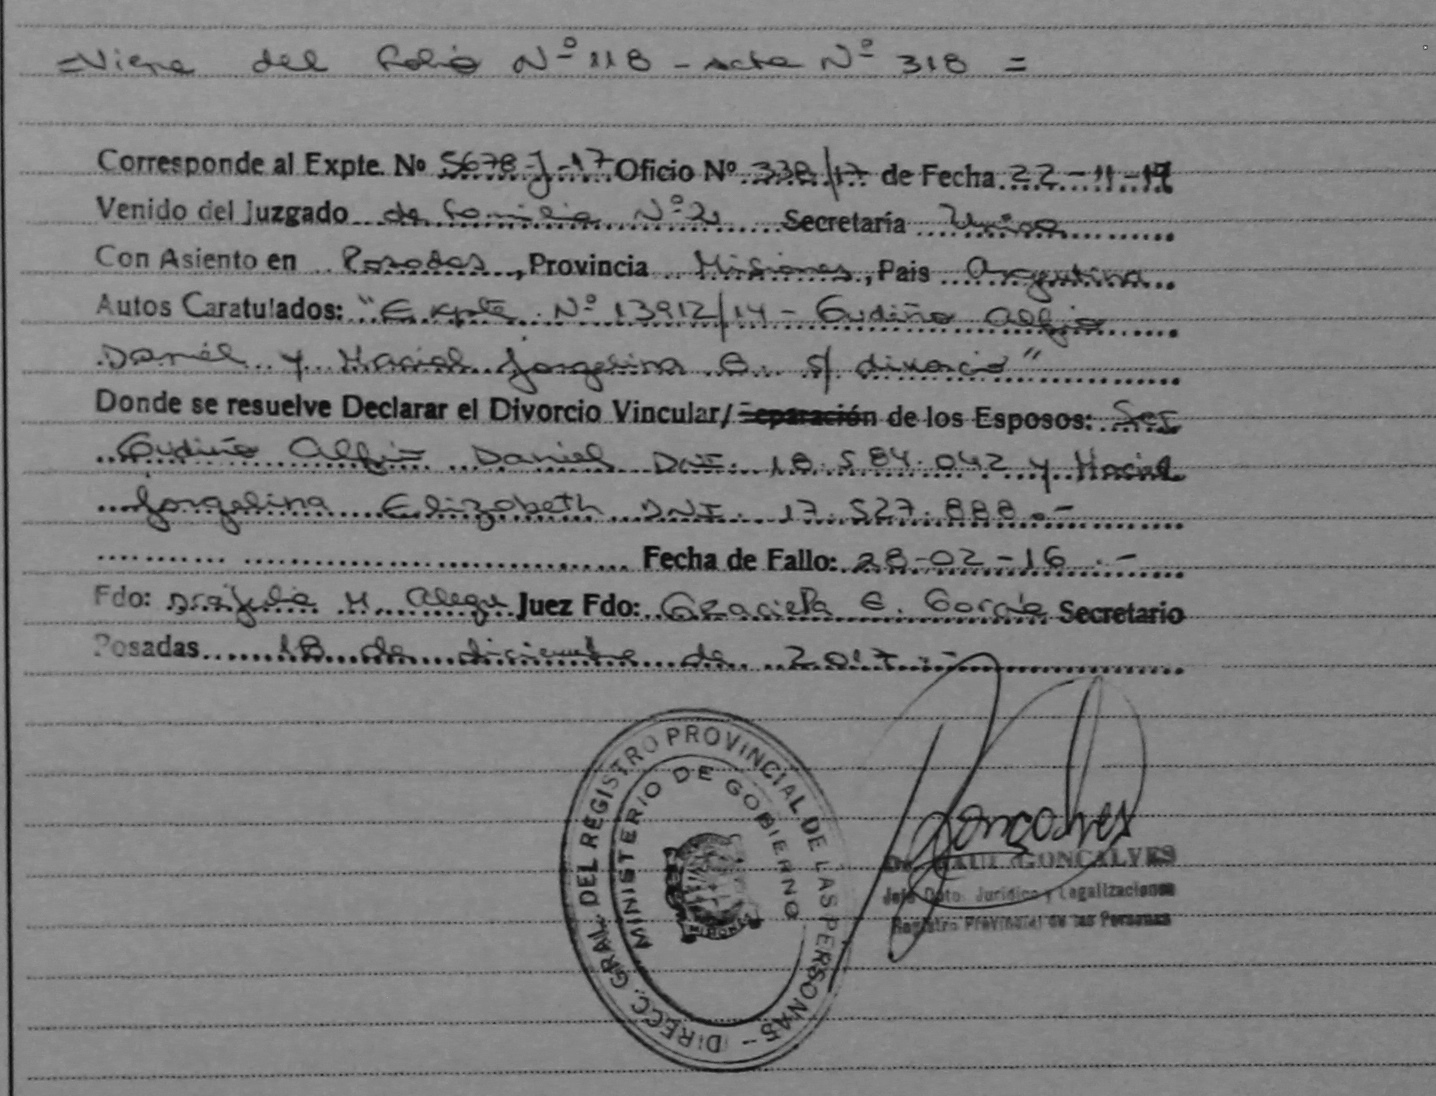 =Viene del folio Nº 118 - Acta Nº 318 =
Corresponde al Expte. Nº 5678-J-17 Oficio Nº 338/17 de Fecha 22-11-17
Venido del Juzgado de Familia Nº 2 Secretaría Única
Con Asiento en Posadas, Provincia Misiones, Pais Argentina
Autos Caratulados: "Expte. Nº 13912/14 - Gudiño Alfio
Daniel y Maciel Jorgelina E. s/ divorcio"
Donde se resuelve Declarar el Divorcio Vincular/Separación de los Esposos:
Gudiño Alfio Daniel DNI. 18.584.042 y Maciel
Jorgelina Elizabeth DNI. 17.527.888.-
Fecha de Fallo: 28-02-16.-
Fdo: M. Juez Fdo: Graciela E. García Secretario
Posadas 18 de diciembre de 2017.-
DIRECC. GRAL. DEL REGISTRO PROVINCIAL DE LAS PERSONAS -
MINISTERIO DE GOBIERNO
MISIONES
Goncalves
Dr. RAUL GONCALVES
Jefe Dpto. Jurídico y Legalizaciones
Registro Provincial de las Personas